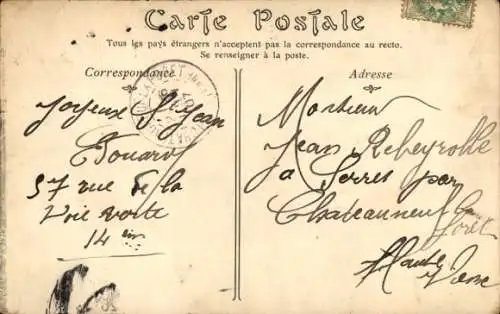 Carte Postale
Tous les pays étrangers n'acceptent pas la correspondance au recto.
Se renseigner à la poste.
Correspondance
Joyeux St Jean
Edouard
57 rue de la
Voie verte
14 em
Adresse
Monsieur
Jean Rebeyrolle
a Serres par
Chateauneuf la
Forêt
Haute Vienne